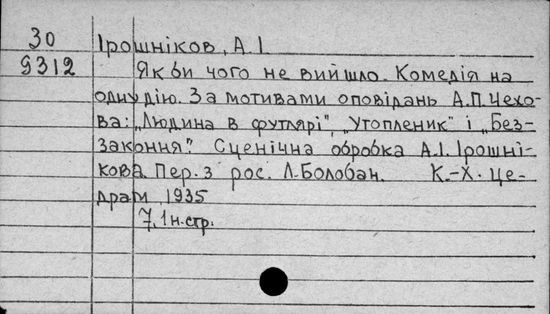 30 Ірошніков, А.І.
9312 Як би чого не вийшло. Комедія на
одну дію. За мотивами оповідань А.П.Чехо-
ва: „Людина в футлярі", „Утопленик" і „Без-
законня". Сценічна обробка А.І. Ірошні-
кова. Пер. з рос. Л.Болобан. К.-Х. Це-
драм, 1935
7, 1 н.стр.